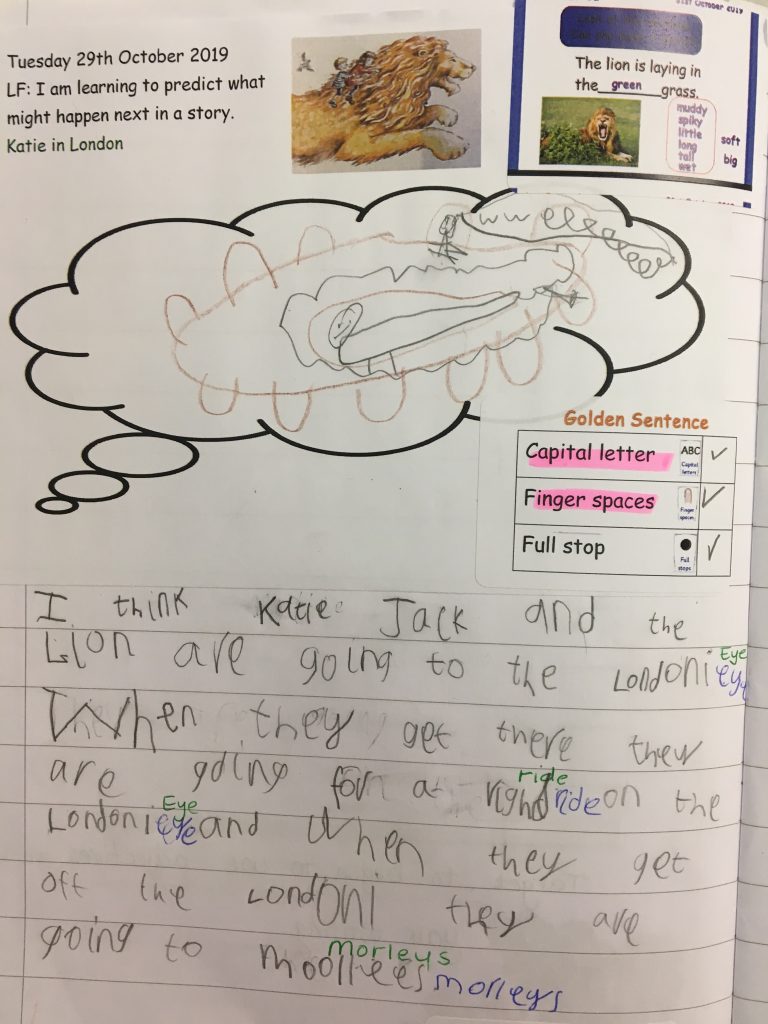 Tuesday 29th October 2019
LF: I am learning to predict what
might happen next in a story.
Katie in London
31st October 2019
The lion is laying in
the green grass.
muddy
spiky
little
long
tall
wet
soft
big
Golden Sentence
Capital letter ABC Capital letters ✓
Finger spaces Finger spaces ✓
Full stop Full stops ✓
I think Katie Jack and the
Lion are going to the Londoni Eye eye
When they get there they
are going for a right ride ride on the
Londoni Eye eye and when they get
off the Londoni they are
going to moollees morleys morleys